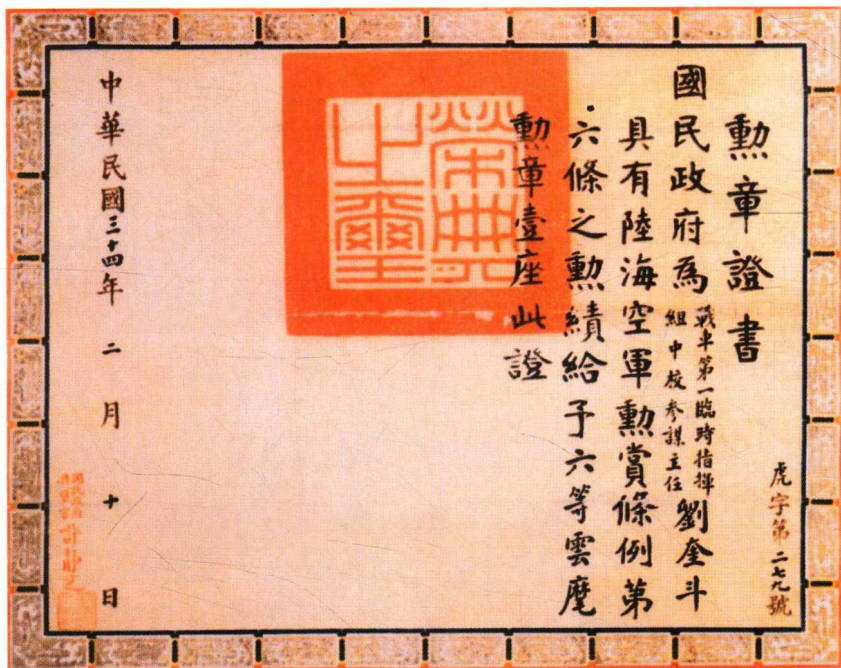 勳章證書
國民政府為戰車第一臨時指揮
組中校參謀主任劉奎斗
具有陸海空軍勳賞條例第
六條之勳績給予六等雲麾
勳章壹座此證
虎字第二七九號
榮典之璽
中華民國三十四年二月十日